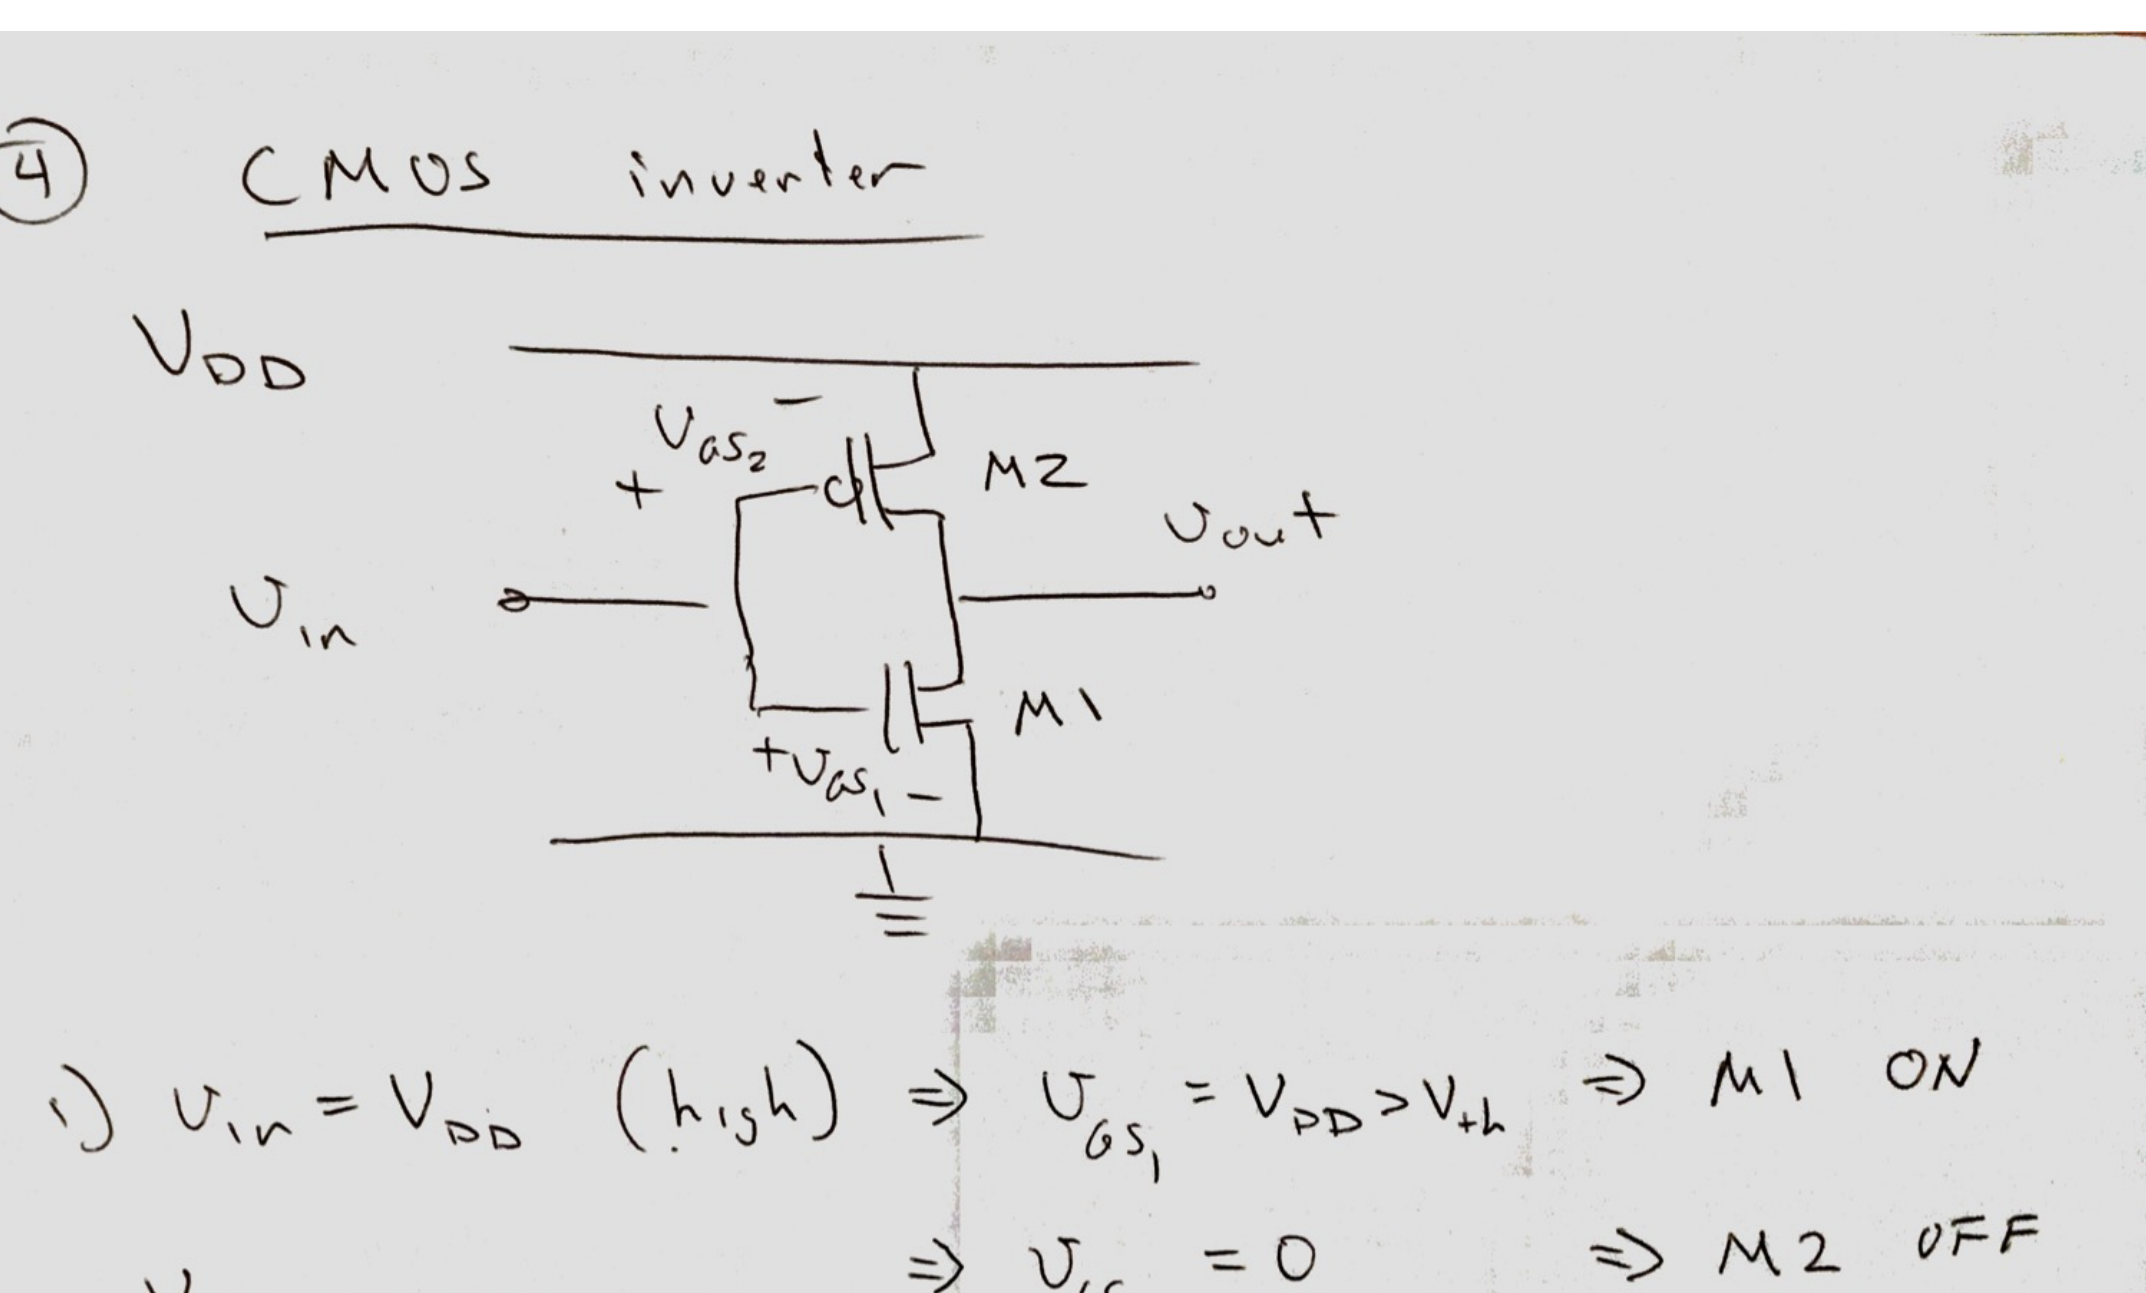 ④ CMOS inverter
VDD
VGS2 −
+
M2
Vout
Vin
M1
+VGS1 −
i) Vin = VDD (high) ⇒ VGS1 = VDD > Vth ⇒ M1 ON
⇒ = 0 ⇒ M2 OFF